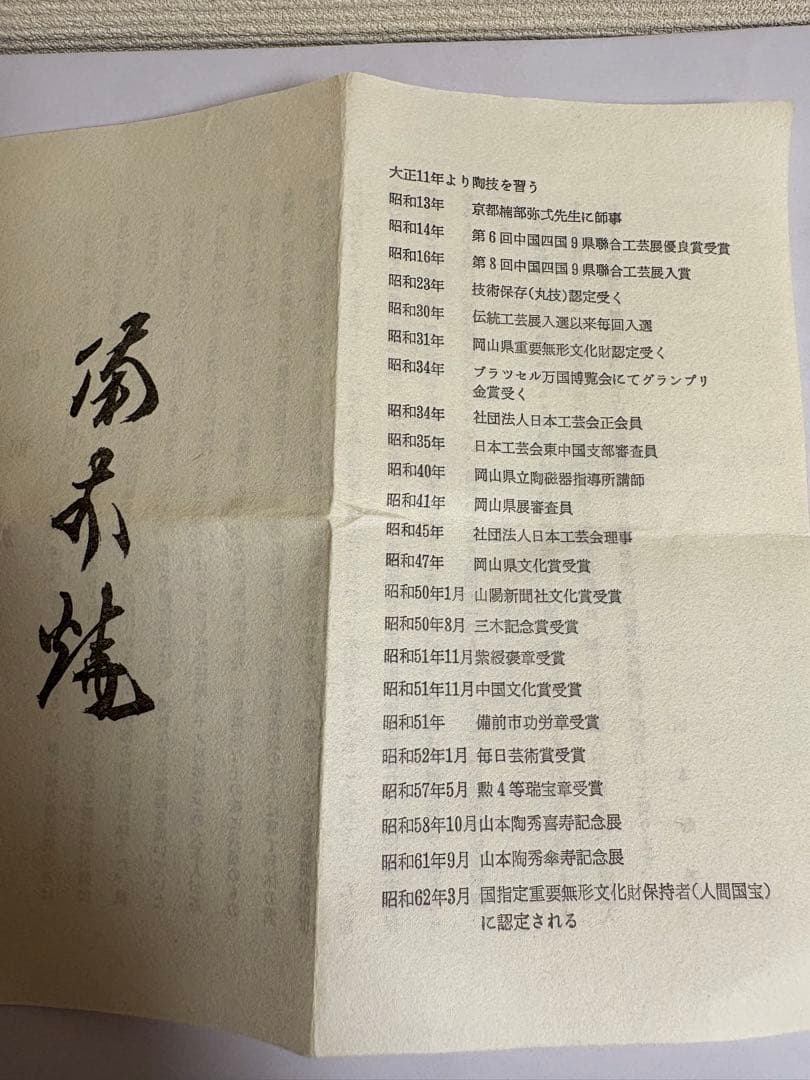 備前焼
大正11年より陶技を習う
昭和13年 京都楠部弥弌先生に師事
昭和14年 第6回中国四国9県聯合工芸展優良賞受賞
昭和16年 第8回中国四国9県聯合工芸展入賞
昭和23年 技術保存(丸技)認定受く
昭和30年 伝統工芸展入選以来毎回入選
昭和31年 岡山県重要無形文化財認定受く
昭和34年 ブラツセル万国博覧会にてグランプリ
金賞受く
昭和34年 社団法人日本工芸会正会員
昭和35年 日本工芸会東中国支部審査員
昭和40年 岡山県立陶磁器指導所講師
昭和41年 岡山県展審査員
昭和45年 社団法人日本工芸会理事
昭和47年 岡山県文化賞受賞
昭和50年1月 山陽新聞社文化賞受賞
昭和50年8月 三木記念賞受賞
昭和51年11月 紫綬褒章受賞
昭和51年11月 中国文化賞受賞
昭和51年 備前市功労章受賞
昭和52年1月 毎日芸術賞受賞
昭和57年5月 勲4等瑞宝章受賞
昭和58年10月 山本陶秀喜寿記念展
昭和61年9月 山本陶秀傘寿記念展
昭和62年3月 国指定重要無形文化財保持者(人間国宝)
に認定される